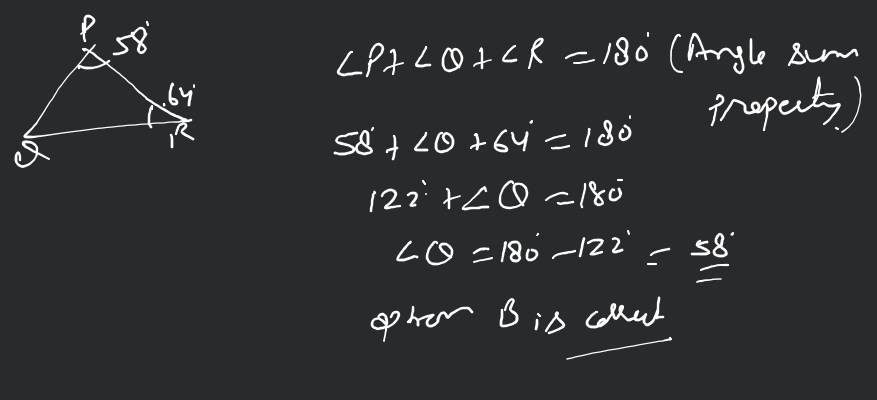 P 58°
64°
Q R
∠P+∠Q+∠R = 180° (Angle sum
property)
58°+∠Q+64° = 180°
122°+∠Q = 180°
∠Q = 180°-122° = 58°
option B is correct